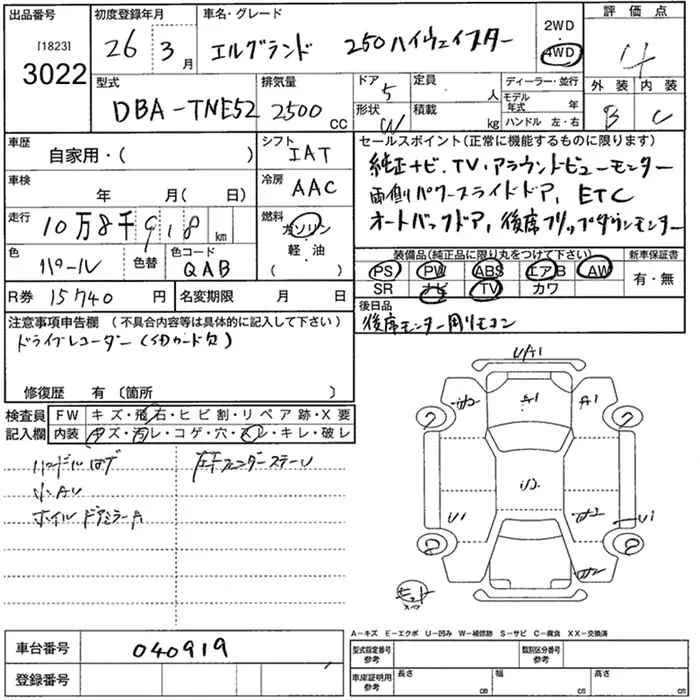 出品番号
[1823]
3022
初度登録年月
26 3 月
車名・グレード
エルグランド 250ハイウェイスター
2WD
4WD
評価点
4
外装 内装
B C
型式
DBA-TNE52
排気量
2500 CC
ドア 5
形状 W
定員 人
積載 kg
ディーラー・並行
モデル年式 年
ハンドル 左・右
車歴
自家用・( )
シフト
IAT
車検
年 月( 日)
冷房
AAC
走行
10万8千918 km
燃料
ガソリン
軽・油
( )
色
パール
色替
色コード
QAB
R券 15740 円
名変期限 月 日
セールスポイント(正常に機能するものに限ります)
純正ナビ.TV.アラウンドビューモニター
両側パワースライドドア, ETC
オートバックドア, 後席フリップダウンモニター
装備品(純正品に限り丸をつけて下さい)
新車保証書
PS PW ABS エアB AW
SR ナビ TV カワ
有・無
後日品
後席モニター用リモコン
注意事項申告欄 (不具合内容等は具体的に記入して下さい)
ドライブレコーダー(SDカード欠)
修復歴 有〔箇所 〕
検査員
記入欄
FW キズ・飛石・ヒビ割・リペア跡・X要
内装 キズ・汚レ・コゲ・穴・スレ・キレ・破レ
ハンドルはげ
小AU
ホイル ドアミラーA
左Fフェンダーステー
UA1
A1
A1
U1
U1
A-キズ E-エクボ U-凹み W-補修跡 S-サビ C-腐食 XX-交換済
車台番号
040919
登録番号
型式指定番号
参考
類別区分番号
参考
車庫証明用
参考
長さ cm
幅 cm
高さ cm